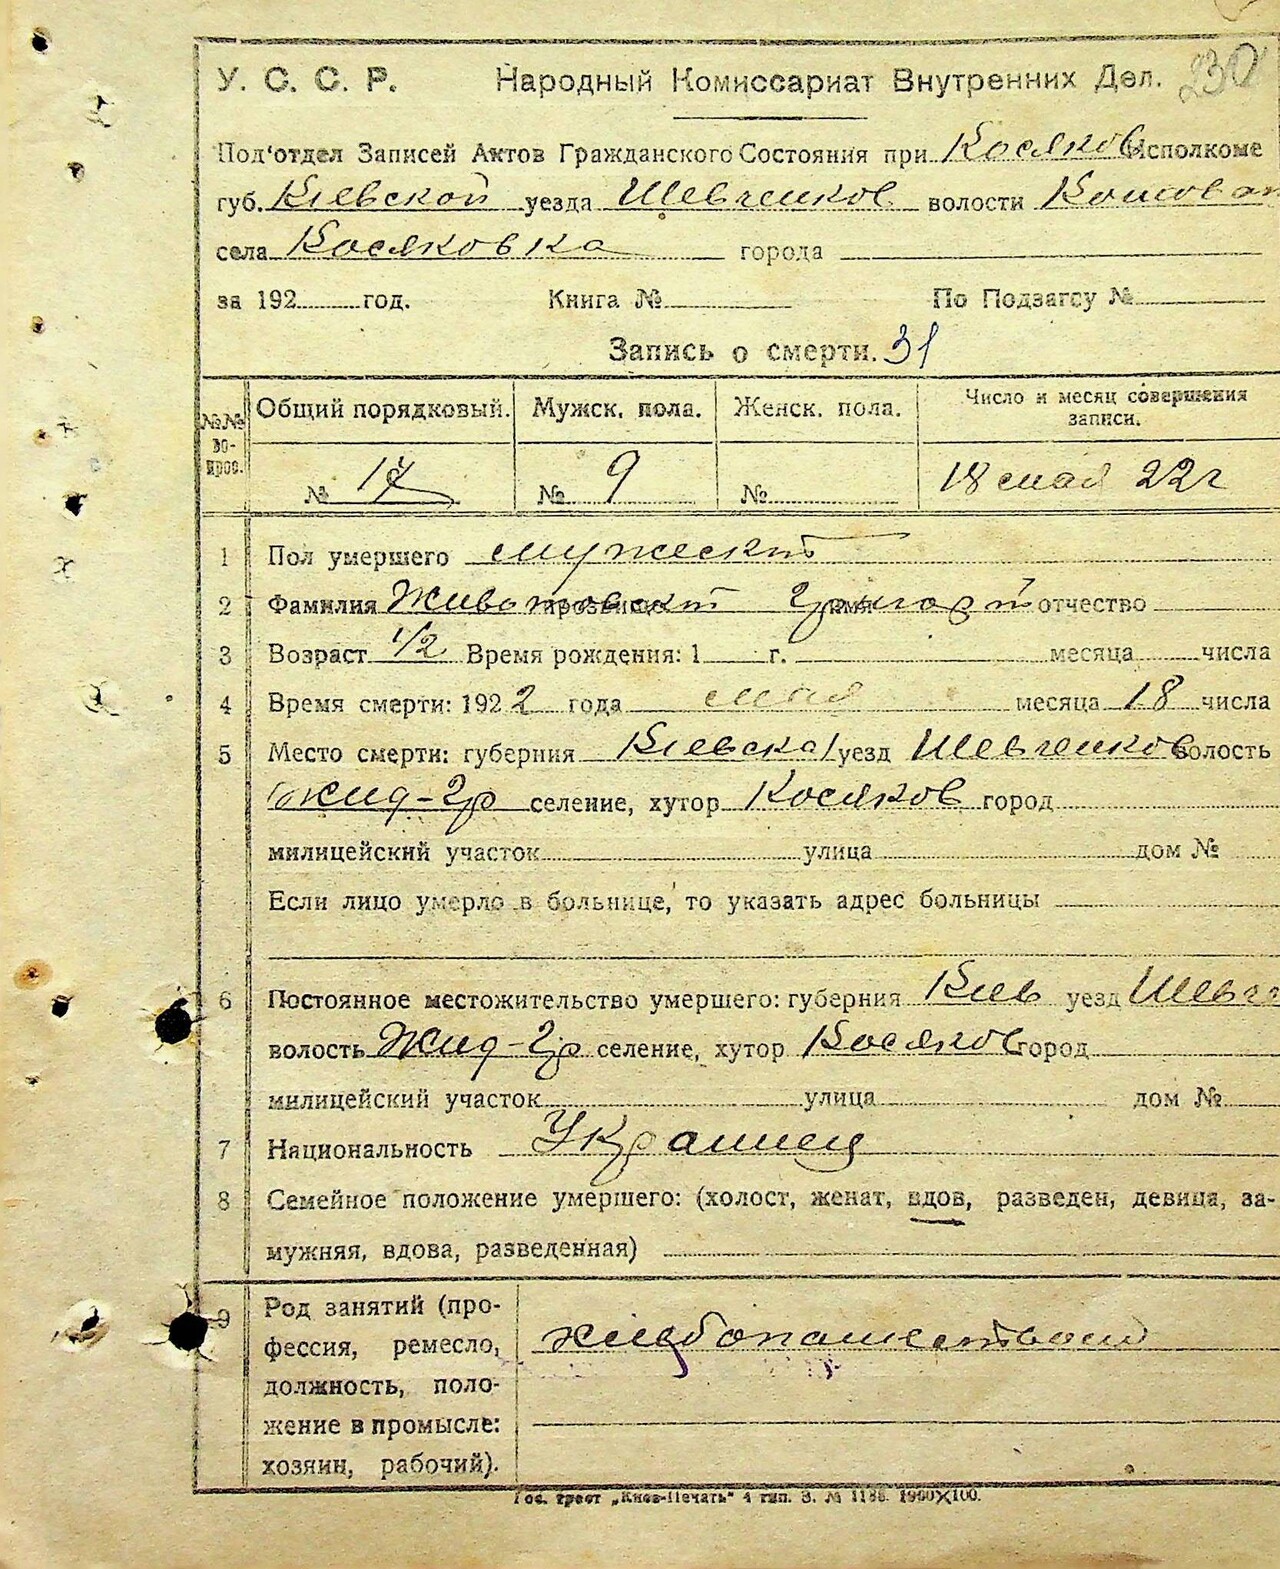 230
У. С. С. Р. Народный Комиссариат Внутренних Дел.
Под'отдел Записей Актов Гражданского Состояния при Косяков Исполкоме
губ. Киевской уезда Шевченков волости
села Косяковка города
за 192 год. Книга № По Подзагсу №
Запись о смерти. 31
№№ вопрос. Общий порядковый. Мужск. пола. Женск. пола. Число и месяц совершения записи.
№ 17 № 9 № 18 мая 22 г
1 Пол умершего мужеский
2 Фамилия Животовский прозвище Григорий имя отчество
3 Возраст 1/2 Время рождения: 1 г. месяца числа
4 Время смерти: 1922 года мая месяца 18 числа
5 Место смерти: губерния Киевская уезд Шевченков волость
Жид-Гр селение, хутор Косяков город
милицейский участок улица дом №
Если лицо умерло в больнице, то указать адрес больницы
6 Постоянное местожительство умершего: губерния Киев уезд Шевч
волость Жид-Гр селение, хутор Косяков город
милицейский участок улица дом №
7 Национальность Украинец
8 Семейное положение умершего: (холост, женат, вдов, разведен, девица, за-
мужняя, вдова, разведенная)
9 Род занятий (про-
фессия, ремесло, хлебопашество
должность, поло-
жение в промысле:
хозяин, рабочий).
Гос. трест „Киев-Печать" 4 тип. З. № 1188. 1900×100.